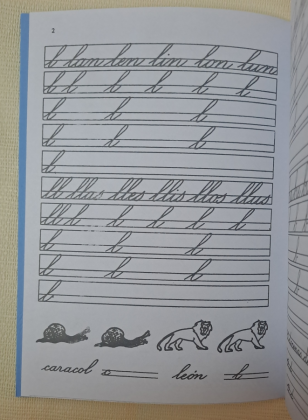 2
l lan len lin lon lun
l l l l l l
l l l
l l l
l
ll llas lles llis llos llus
ll l l l l l
l l l
l l l
l
caracol c león l